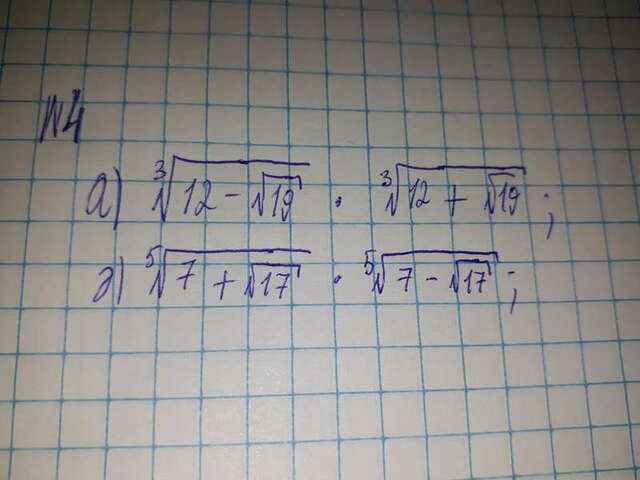 №4
а) ∛(12 - √19) · ∛(12 + √19);
г) ⁵√(7 + √17) · ⁵√(7 - √17);